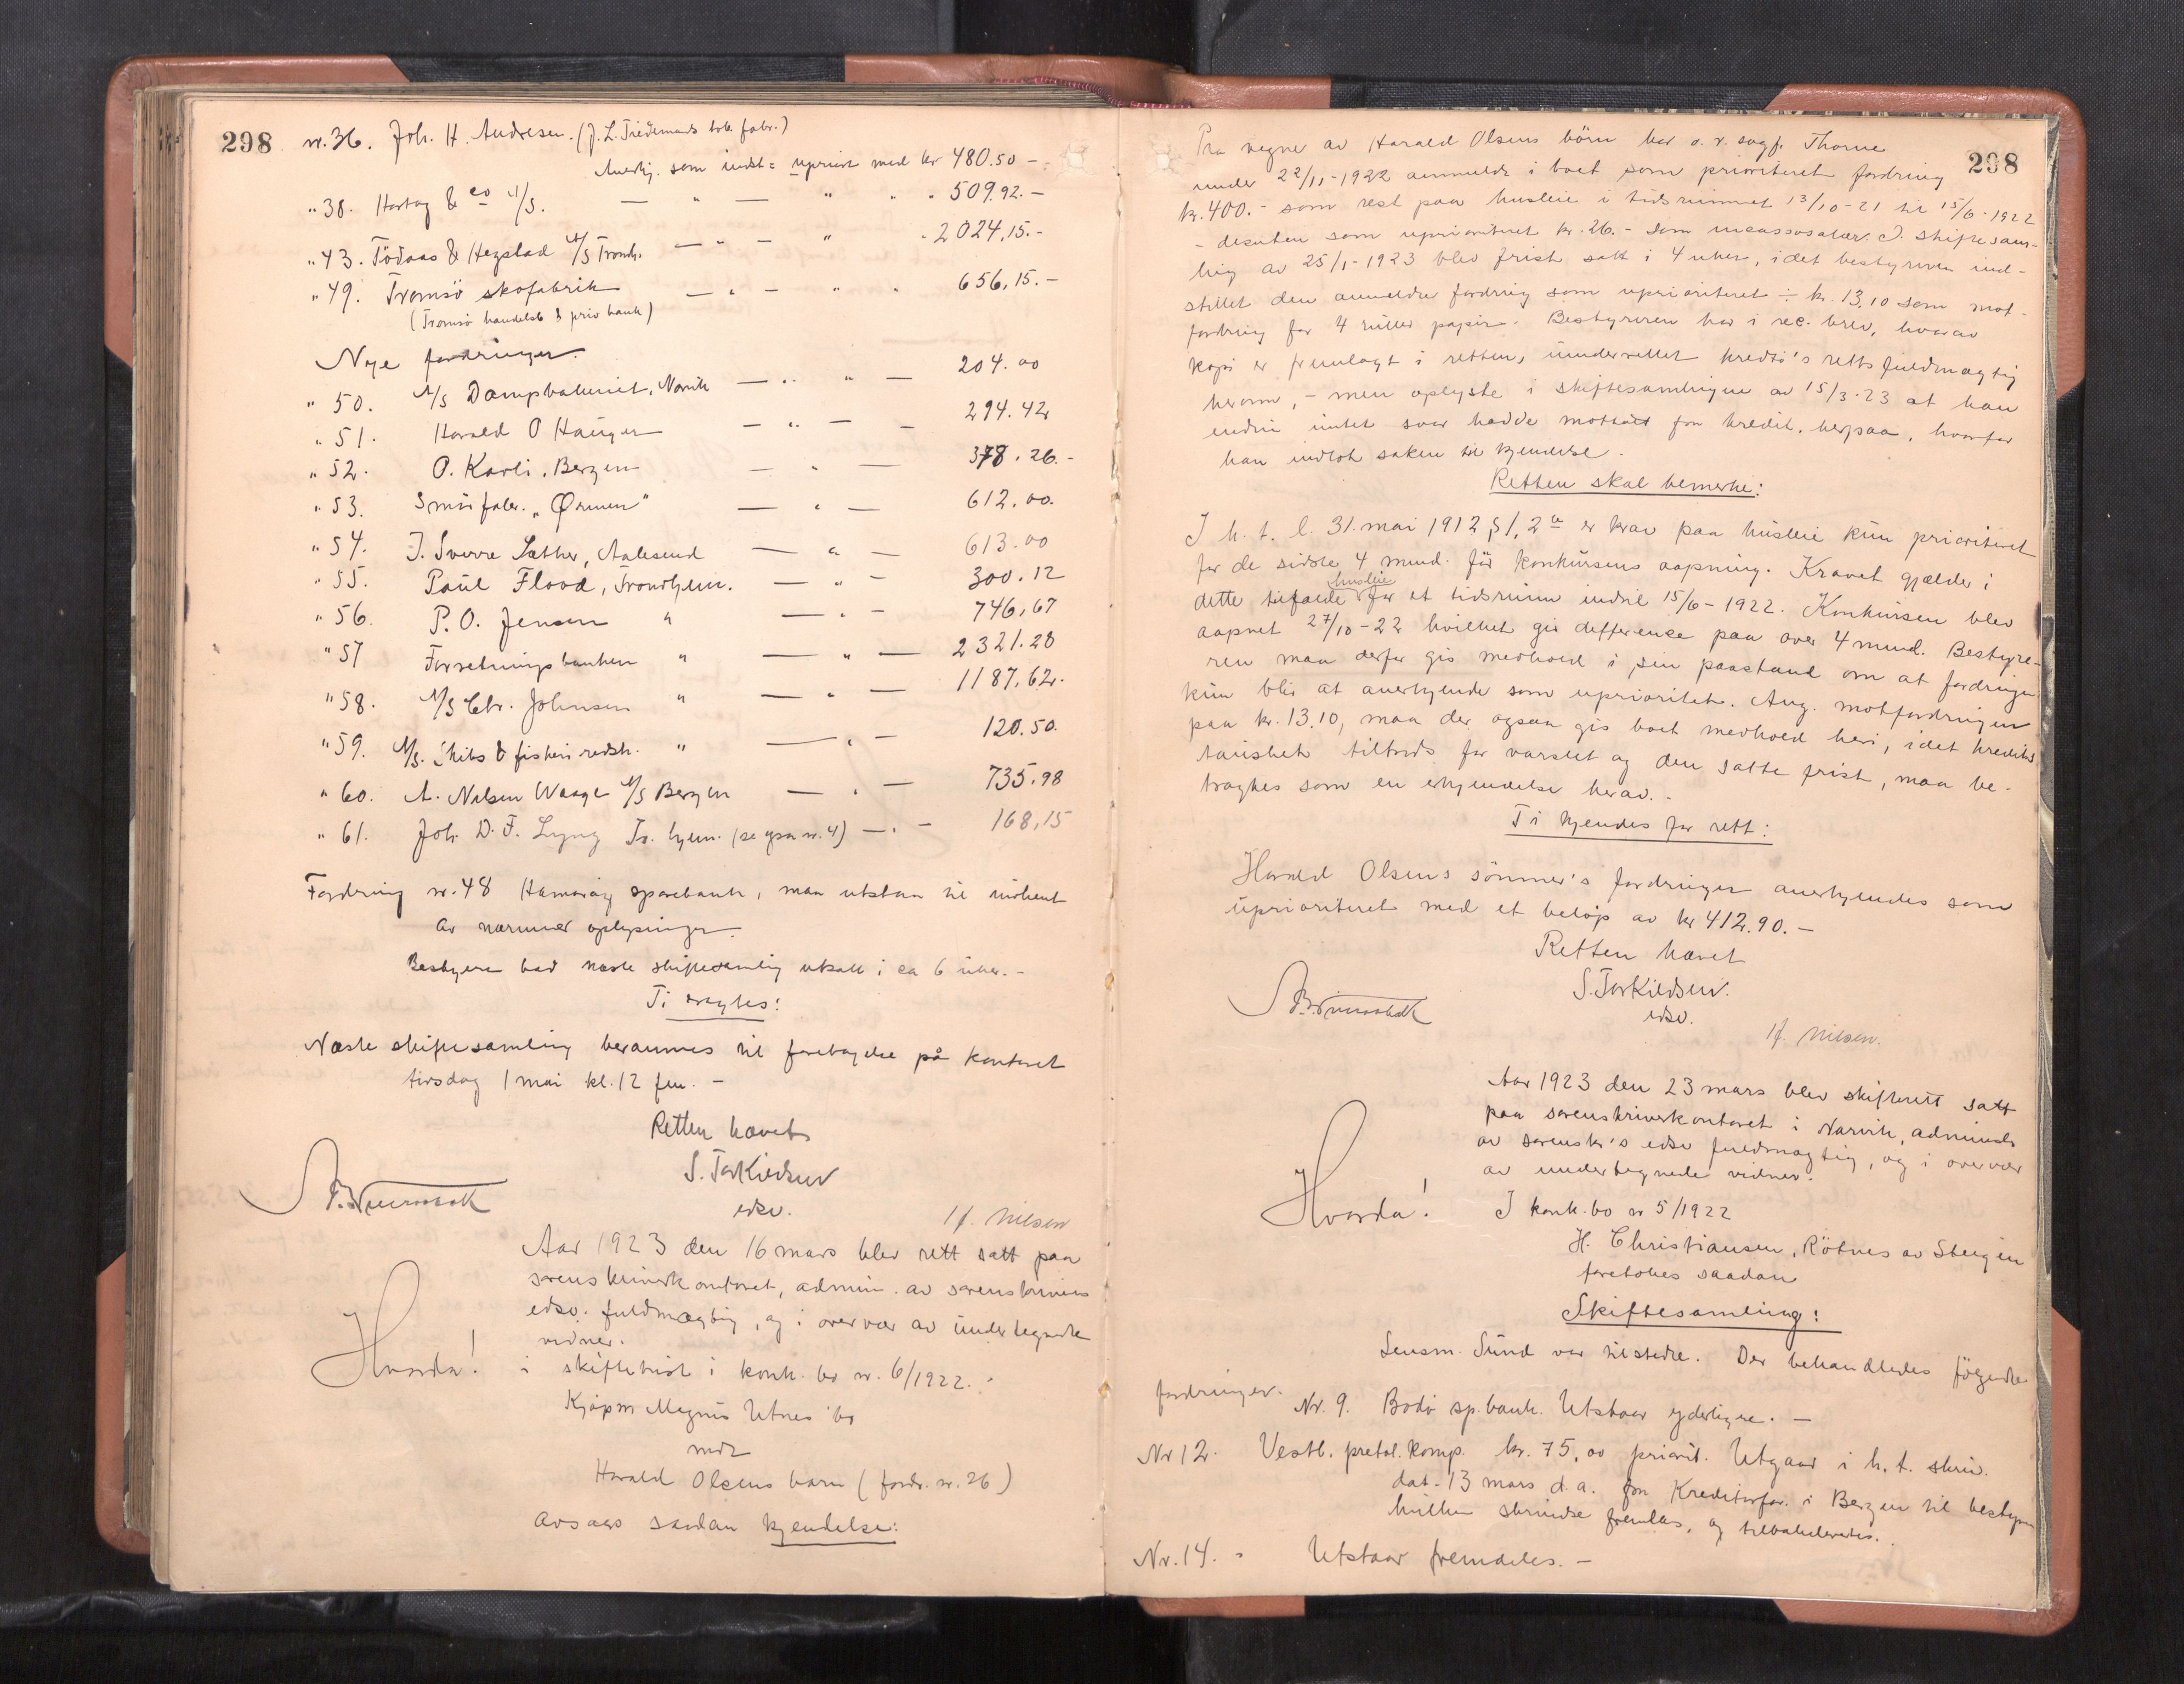 298
nr. 36. Joh. H. Andresen. (J. L. Tiedemands tob. fabr.)
Anerkj. som indst = upriort med kr 480.50 -
" 38. Hartog & Co A/S. — " — " " " 509.92.-
" 43. Tödaas & Hegstad A/S Trondh. — " — " " 2024,15.-
" 49. Tromsö skofabrik — " — " " 656,15.-
(Tromsö handelsb & priv bank)
Nye fordringer.
" 50. A/S Dampbakeriet, Narvik — " " — 204.00
" 51. Harald O Hauger — " — — 294.42
" 52. O. Kavli, Bergen — " — 378.26.-
" 53. Smörfabr. "Ørnen" — " — 612.00.
" 54. J. Sverre Sæther, Aalesund — " — 613.00
" 55. Paul Flood, Trondhjem. — " — 300.12
" 56. P. O. Jensen " — " - 746,67
" 57 Forretningsbanken " — " — 2321.28
" 58. A/S Chr. Johnsen " — " — 1187,62.
" 59. A/S. Skibs & fiskeriredsk. " — " — 120.50.
" 60. A. Nilsen Waage A/S Bergen — " — 735.98
" 61. Joh. D. F. Lyng Tr. hjem. (se ogsaa nr. 4) — " — 168,15
Fordring nr. 48 Hamarøy sparebank, maa utstaa til indhent
av nærmere oplysninger.
Bestyrer bad næste skiftesamling utsatt i ca 6 uker. -
Ti vedtages:
Næste skiftesamling berammes til foretagelse på kontoret
tirsdag 1 mai kl. 12 fm. -
Retten hævet
S. Torkildsen
edsv.
H. Nilsen
Aar 1923 den 16 mars blev rett satt paa
sorenskriverkontoret, admin. av sorenskriverens
edsv. fuldmægtig, og i overvær av undertegnede
vidner.
Hvorda! i skiftetvist i konk. bo nr. 6/1922.
Kjøpm Magnus Utnes bo
mot
Harald Olsens barn (fordr. nr. 26)
avsaes saadan kjendelse:
298
Paa vegne av Harald Olsens börn har o. r. sagf. Thorne
under 22/11-1922 anmeldt i boet som prioriteret fordring
kr. 400.- som rest paa husleie i tidsrummet 13/10-21 til 15/6-1922
- desuten som uprioriteret kr. 26.- som incassosalær. I skiftesam-
ling av 25/1-1923 blev frist satt i 4 uker, idet bestyreren ind-
stillet den anmeldte fordring som uprioriteret ÷ kr. 13,10 som mot-
fordring for 4 ruller papir. Bestyreren har i rec. brev, hvorav
kopi er fremlagt i retten, underrettet kreditor's rettsfuldmægtig
herom, - men oplyste i skiftesamlingen av 15/3-23 at han
endnu intet svar hadde mottatt fra kredit. herpaa, hvorfor
han indlot saken til kjendelse.
Retten skal bemerke:
I h. t. l. 31. mai 1912 § 1, 2a er krav paa husleie kun prioritert
for de sidste 4 mnd. för konkursens aapning. Kravet gjælder i
dette tilfælde husleie for et tidsrum indtil 15/6-1922. Konkursen blev
aapnet 27/10-22 hvilket gir defference paa over 4 mnd. Bestyre-
ren maa derfor gis medhold i sin paastand om at fordringen
kun blir at anerkjende som uprioritet. Ang. motfordringen
paa kr. 13.10, maa der ogsaa gis boet medhold heri, idet kreditors
taushet tiltrods for varslet og den satte frist, maa be-
tragtes som en erkjendelse herav. -
Ti kjendes for rett:
Harald Olsens sönner's fordringer anerkjendes som
uprioriteret med et belöp av kr 412.90.-
Retten hævet
S. Torkildsen.
edsv.
H. Nilsen.
Aar 1923 den 23 mars blev skifterett satt
paa sorenskriverkontoret i Narvik, administr
av sorenskr's edsv fuldmægtig, og i overvær
av undertegnede vidner.
Hvorda! I konk. bo nr 5/1922
H. Christiansen, Rötnes av Steigen
foretokes saadan
Skiftesamling:
Lensm. Sund var tilstede. Der behandledes fölgende
fordringer. Nr. 9. Bodö sp.bank. Utstaar yderligere. -
Nr 12. Vestl. pretol. komp. kr. 75,00 priorit. Utgaar i h. t. skriv.
dat. 13 mars d. a. fra Kreditorfor. i Bergen til bestyrer
hvilken skrivelse fremlaes, og tilbakeleveres.
Nr. 14. - Utstaar fremdeles. -